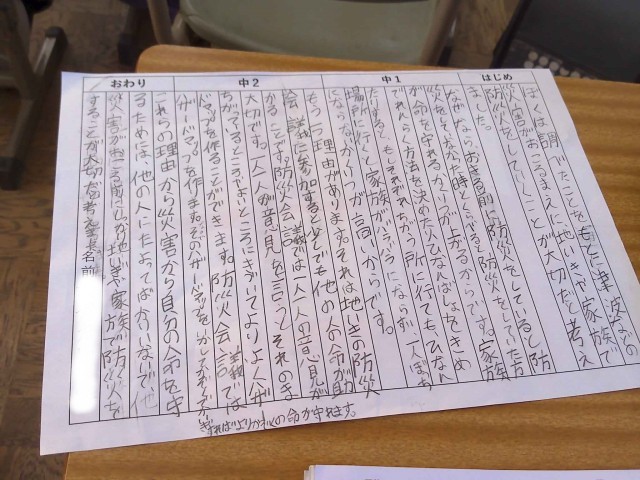 はじめ
中1
中2
おわり
ぼくは調べたことをもとに津波などの
災害がおこるまえに地いきや家族で
防災をしていくことが大切だと考え
ました。
なぜなら
前に防災をしていると防
災をしなかった時とくらべると防災をしていた方
が命を守れるかのうが上がるからです。家族
でれんらく方法を決めたりひなんばしょをきめ
たりすると、もしそれぞれちがう所に行ても、ひなん
場所に行くと家族がバラバラにならず、一人ぼっち
にならないかのうが高いからです。
もう一つ理由があります。それは地いきの防災
会議に参加すると少しでも他の人の命が助
かることです。防災会議では一人一人の意見が
大切です。一人一人が意見を言ってそれのま
ちがっているところやよいところにきづいてよりよいハザ
ードマップを作ることができます。防災会議では
ハザードマップを作ります。そのハザードマップを
これらの理由から災害から自分の命を守
るためには、他の人にたよってばかりいないで他
災害がおこる前に
地いきや家族で防災を
することが大切だと考えます。
名前
すればよりおおくの命が守れます。